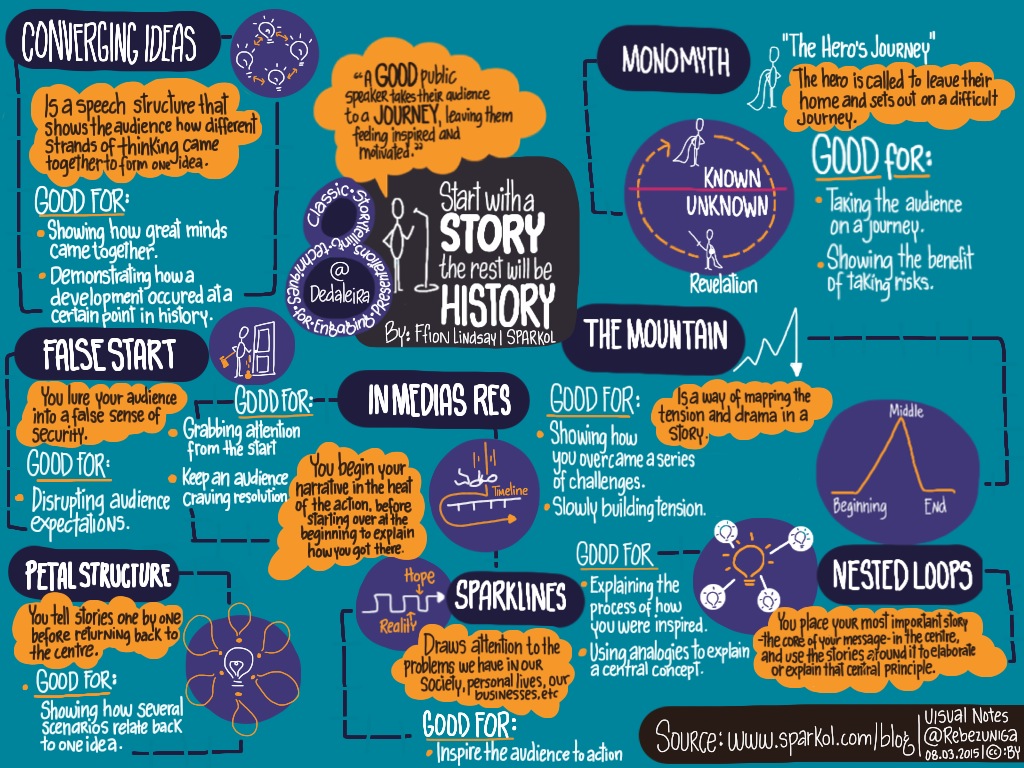 CONVERGING IDEAS
Is a speech structure that
shows the audience how different
strands of thinking came
together to form one idea.
GOOD FOR:
• Showing how great minds
came together.
• Demonstrating how a
development occured at a
certain point in history.
"A GOOD public
speaker takes their audience
to a JOURNEY, leaving them
feeling inspired and
motivated."
8 Classic Storytelling techniques for Engaging Presentations
@
Dedaleira
Start with a
STORY
the rest will be
HISTORY
By: Ffion Lindsay | SPARKOL
MONOMYTH
"The Hero's Journey"
The hero is called to leave their
home and sets out on a difficult
Journey.
KNOWN
UNKNOWN
Revelation
GOOD for:
• Taking the audience
on a journey.
• Showing the benefit
of taking risks.
FALSE START
You lure your audience
into a false sense of
security.
GOOD FOR:
• Disrupting audience
expectations.
IN MEDIAS RES
GOOD FOR:
• Grabbing attention
from the start
• Keep an audience
craving resolution.
You begin your
narrative in the heat
of the action, before
starting over at the
beginning to explain
how you got there.
Timeline
THE MOUNTAIN
Is a way of mapping the
tension and drama in a
STORY.
GOOD FOR:
• Showing how
you overcame a series
of challenges.
• Slowly building tension.
Middle
Beginning
End
PETAL STRUCTURE
You tell stories one by one
before returning back to
the centre.
• GOOD FOR:
Showing how several
scenarios relate back
to one idea.
Hope
Reality
SPARKLINES
Draws attention to the
problems we have in our
society, personal lives, our
businesses, etc
GOOD FOR:
• Inspire the audience to action
NESTED LOOPS
You place your most important story
-the core of your message- in the centre,
and use the stories around it to elaborate
or explain that central principle.
GOOD FOR
• Explaining the
process of how
you were inspired.
• Using analogies to explain
a central concept.
Source: www.sparkol.com/blog
Visual Notes
@Rebezuniga
08.03.2015 | ©:BY